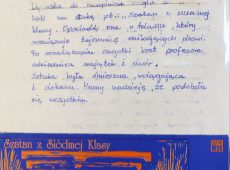 Woli na sztukę pt. "Szatan z siódmej
klasy". Opowiada ona o Adasiu, który
rozwiązuje tajemnicę znikających drzwi.
Po rozwiązaniu zagadki brat profesora,
odziedzicza majątek i dwór.
Sztuka była śmieszna, wciągająca
i ciekawa. Mamy nadzieję, że podobała
się wszystkim.
Szatan z Siódmej Klasy